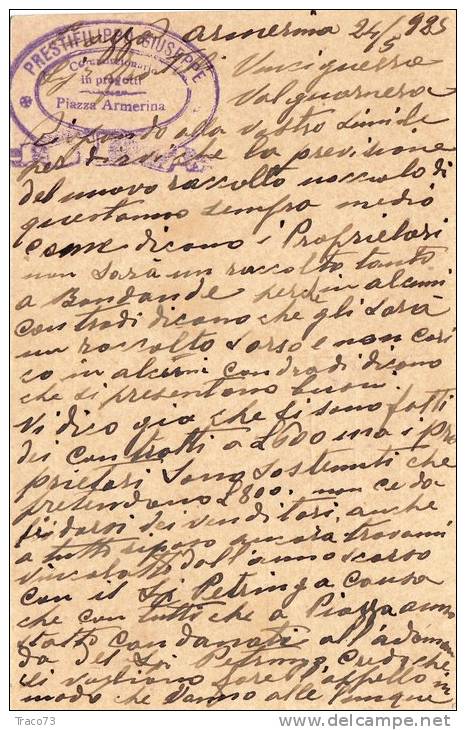 Piazza Armerina 24/5 925
PRESTIFILIPPO GIUSEPPE
Commissionario
in progotti
Piazza Armerina
Vinciguerra
Valguarnera
Rispondo alla vostro simile
per dirvi che la previsione
del nuovo raccolto nocciolo di
quest'anno sempre medio
Come dicono i Proprietari
non sarà un raccolto tanto
a Bondande perche in alcuni
contradi dicono che gli sarà
un raccolto scarso e non cari
co in alcuni contradi dicono
che si presentano buoni.
Vi dico già che si sono fatti
dei contratti a £600 ma i pro
prietari sono sostenuti che
pretendano £800. non ce da
fidarsi dei venditori, anche
a tutti ancora trovami
vincolato dall'anno scorso
con il Si Petringa causa
che con tutti che a Piazza anno
stato condannati all'adoman
da del Si Petringa Credo che
si vogliano fare l'appello in
modo che vanno alle lunque
Traco73